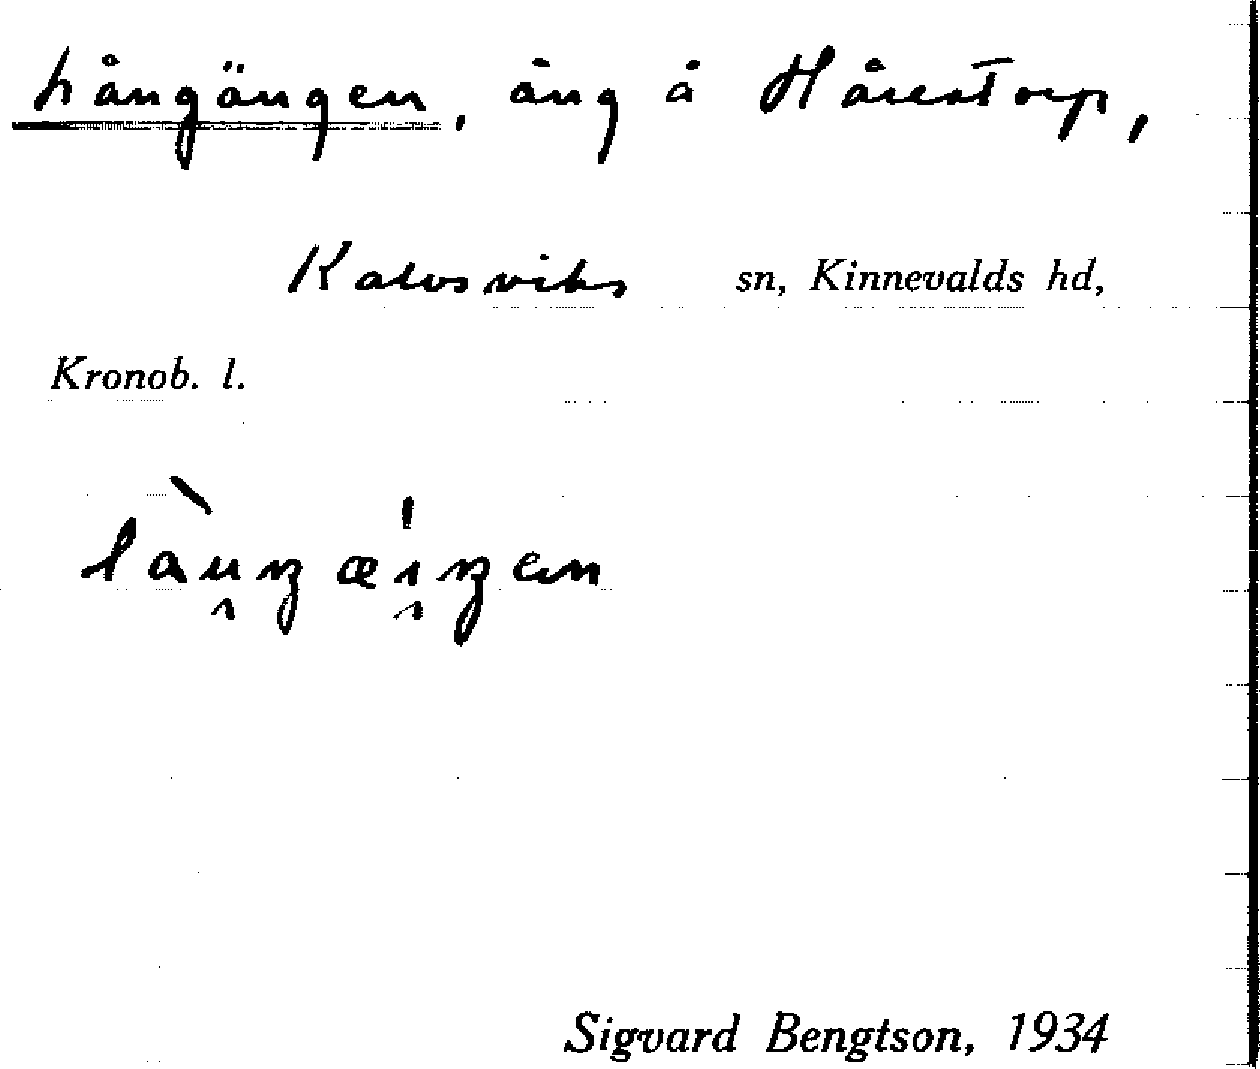 Långängen, äng å Hårestorp,
Kalvsviks sn, Kinnevalds hd,
Kronob. l.
Sigvard Bengtson, 1934